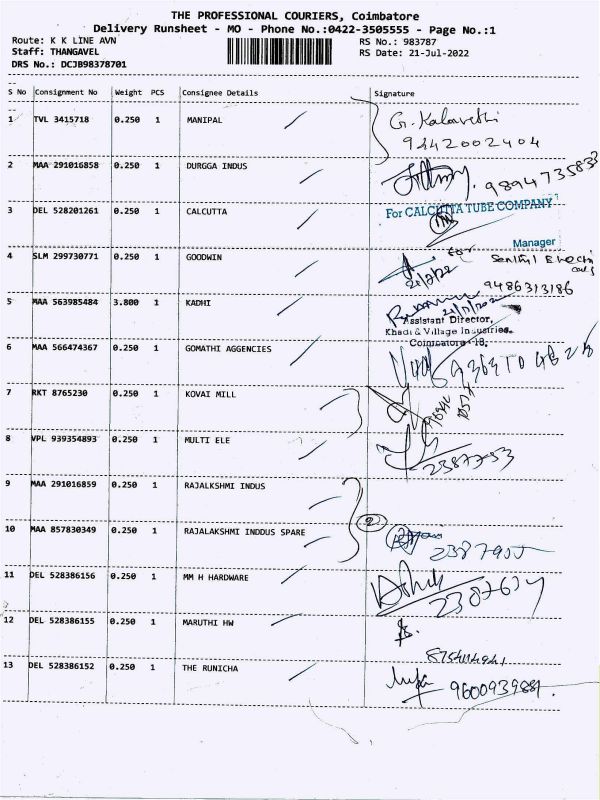 THE PROFESSIONAL COURIERS, Coimbatore
Delivery Runsheet - MO - Phone No.:0422-3505555 - Page No.:1
Route: K K LINE AVN RS No.: 983787
Staff: THANGAVEL RS Date: 21-Jul-2022
DRS No.: DCJB98378701
S No Consignment No Weight PCS Consignee Details Signature
1 TVL 3415718 0.250 1 MANIPAL G. Kalavathi
9442002404
2 MAA 291016858 0.250 1 DURGGA INDUS 9894735833
3 DEL 528201261 0.250 1 CALCUTTA For CALCUTTA TUBE COMPANY
Manager
4 SLM 299730771 0.250 1 GOODWIN for Senthil
21/7/22 9486313186
5 MAA 563985484 3.800 1 KADHI
Assistant Director,
Khadi & Village Industries.
Coimbatore - 18.
6 MAA 566474367 0.250 1 GOMATHI AGGENCIES
7 RKT 8765230 0.250 1 KOVAI MILL
8 VPL 939354893 0.250 1 MULTI ELE
9 MAA 291016859 0.250 1 RAJALKSHMI INDUS
10 MAA 857830349 0.250 1 RAJALAKSHMI INDDUS SPARE 2
11 DEL 528386156 0.250 1 MM H HARDWARE
12 DEL 528386155 0.250 1 MARUTHI HW
8754114941
13 DEL 528386152 0.250 1 THE RUNICHA 9600939881.